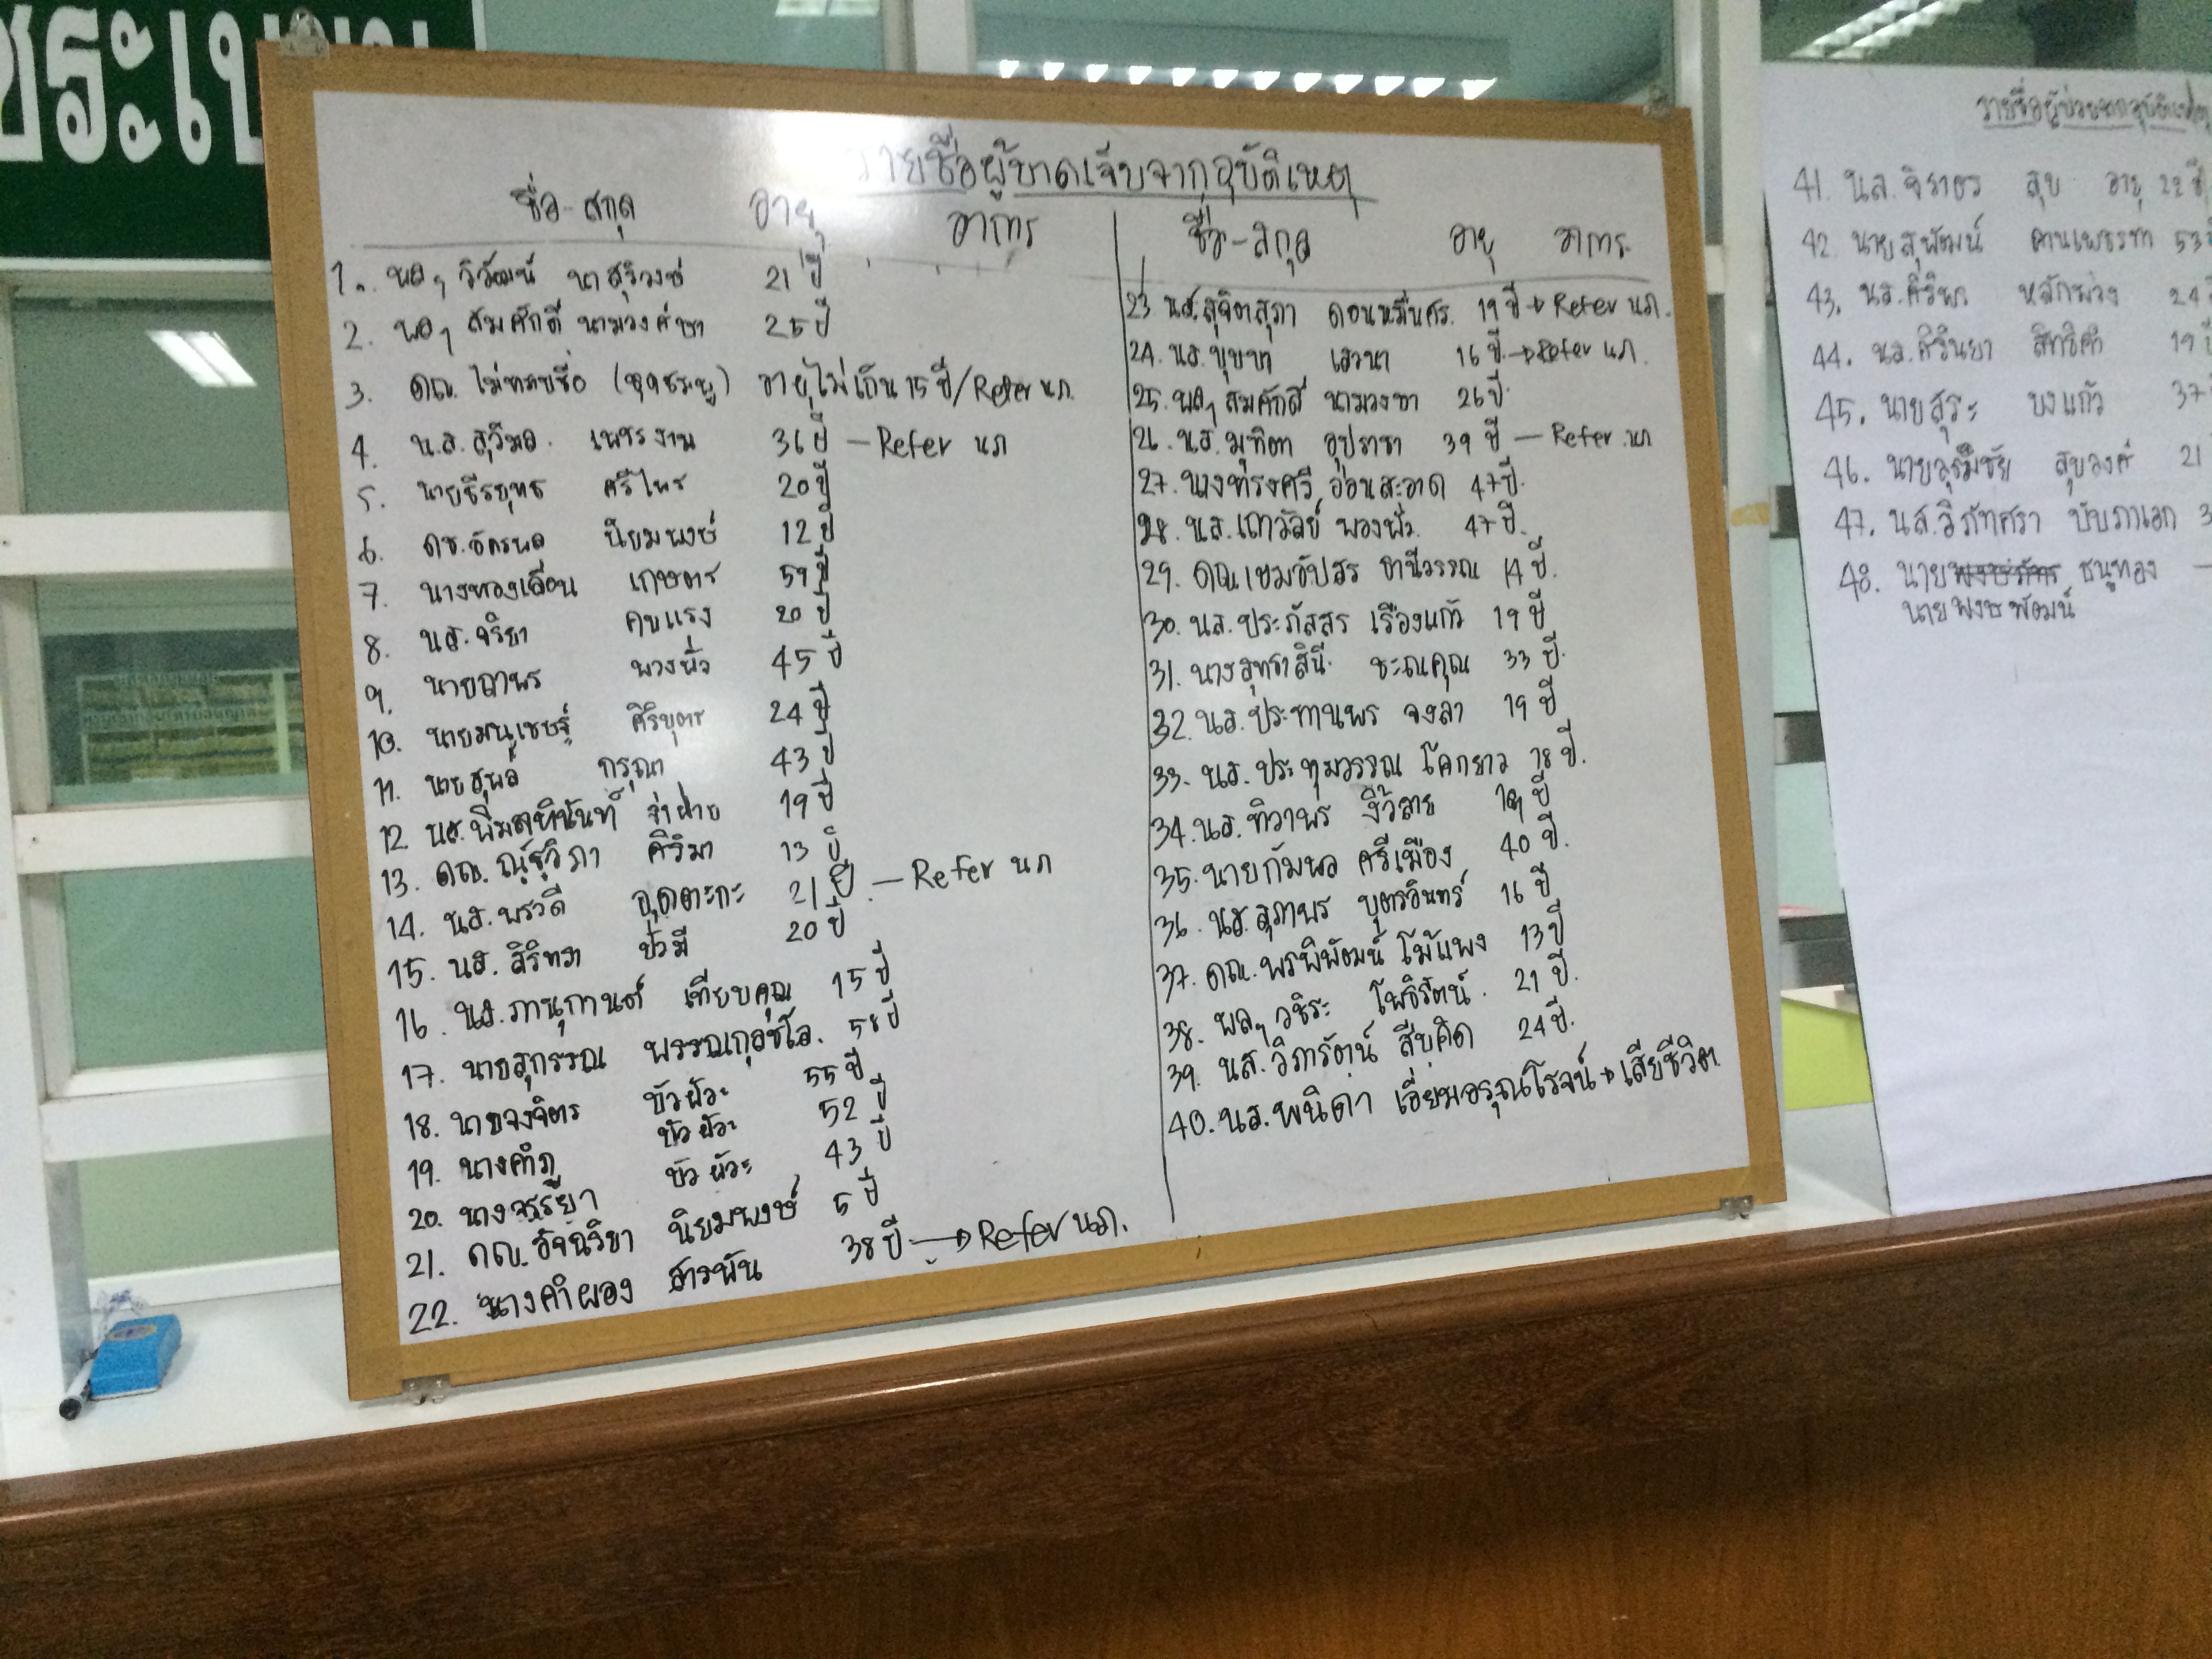 รายชื่อผู้บาดเจ็บจากอุบัติเหตุ
ชื่อ-สกุล อายุ อาการ
1. พลฯ วิวัฒน์ นาสุริวงษ์ 21 ปี
2. พลฯ สมศักดิ์ นามวงศ์ษา 25 ปี
3. ดญ. ไม่ทราบชื่อ (ชุดชมพู) อายุไม่เกิน 15 ปี/Refer นภ.
4. น.ส. สุวิมล. เพชรงาม 36 ปี — Refer นภ
5. นายธีรยุทธ ศรีไพร 20 ปี
6. ดช. อัครพล นิยมพงษ์ 12 ปี
7. นางทองเลื่อน เกษตร 59 ปี
8. นส. จริยา คบแรง 20 ปี
9. นายถาพร พวงพั่ว 45 ปี
10. นายมนูเชษฐ์ ศิริบุตร 24 ปี
11. นายสุพล กรุณา 43 ปี
12. นส. จำฝ่าย 19 ปี
13. ดญ. ณัฐวิภา ศิริมา 13 ปี
14. นส. พรวดี อุดตะกะ 21 ปี — Refer นภ
15. นส. สิริทรา บัวมี 20 ปี
16. นส. ภานุกานต์ เทียบคุณ 15 ปี
17. นายสุกรรณ พรรณกุลชโล. 58 ปี
18. นายจงจิตร บัวผัวะ 55 ปี
19. นางคำภู บัวผัวะ 52 ปี
20. นางจรรยา บัวผัวะ 43 ปี
21. ดญ. อัจฉริยา นิยมพงษ์ 5 ปี
22. นางคำผอง สารพัน 38 ปี → Refer นภ.
ชื่อ-สกุล อายุ อาการ
23 นส. สุจิตสุภา ดอนหมื่นศร. 19 ปี → Refer นภ.
24. นส. บุบผา เสวนา 16 ปี. → Refer นภ.
25. พลฯ สมศักดิ์ นามวงษา 26 ปี.
26. นส. มุทิตา อุปราชา 39 ปี — Refer นภ
27. นางทรงศรี อ่อนสะอาด 47 ปี.
28. นส. เถาวัลย์ พวงพั่ว. 47 ปี.
29. ดญ. เขมอัปสร ธานีวรรณ 14 ปี.
30. นส. ประภัสสร เรืองแก้ว 19 ปี
31. นางสุทธาสินี. ชะณคุณ 33 ปี.
32. นส. ประทานพร จงลา 19 ปี
33. นส. ประทุมวรรณ โคกยาว 18 ปี.
34. นส. ทิวาพร งิ้วลาย 19 ปี
35. นายกัมพล ศรีเมือง 40 ปี.
36. นส. สุภาพร บุตรอินทร์ 16 ปี
37. ดญ. พรพิพัฒน์ โม้แพง 13 ปี
38. พลฯ วชิระ โพธิรัตน์. 21 ปี.
39. นส. วิภารัตน์ สืบคิด 24 ปี.
40. นส. พนิดา เอี่ยมอรุณโรจน์ → เสียชีวิต
รายชื่อผู้ป่วยจากอุบัติเหตุ
41. นส. จิราธร สุข อายุ 22 ปี
42. นายสุพัฒน์ ดานเพชรทา 53
43. นส. ศิริพร หลักพวง 24
44. นส. ศิรินยา สิทธิคำ 19
45. นายสุระ บงแก้ว 37
46. สุขวงศ์ 21
47. นส. วิภัทศรา บับภาเอก 3
48. นาย ธนูทอง
นายพงษพัฒน์